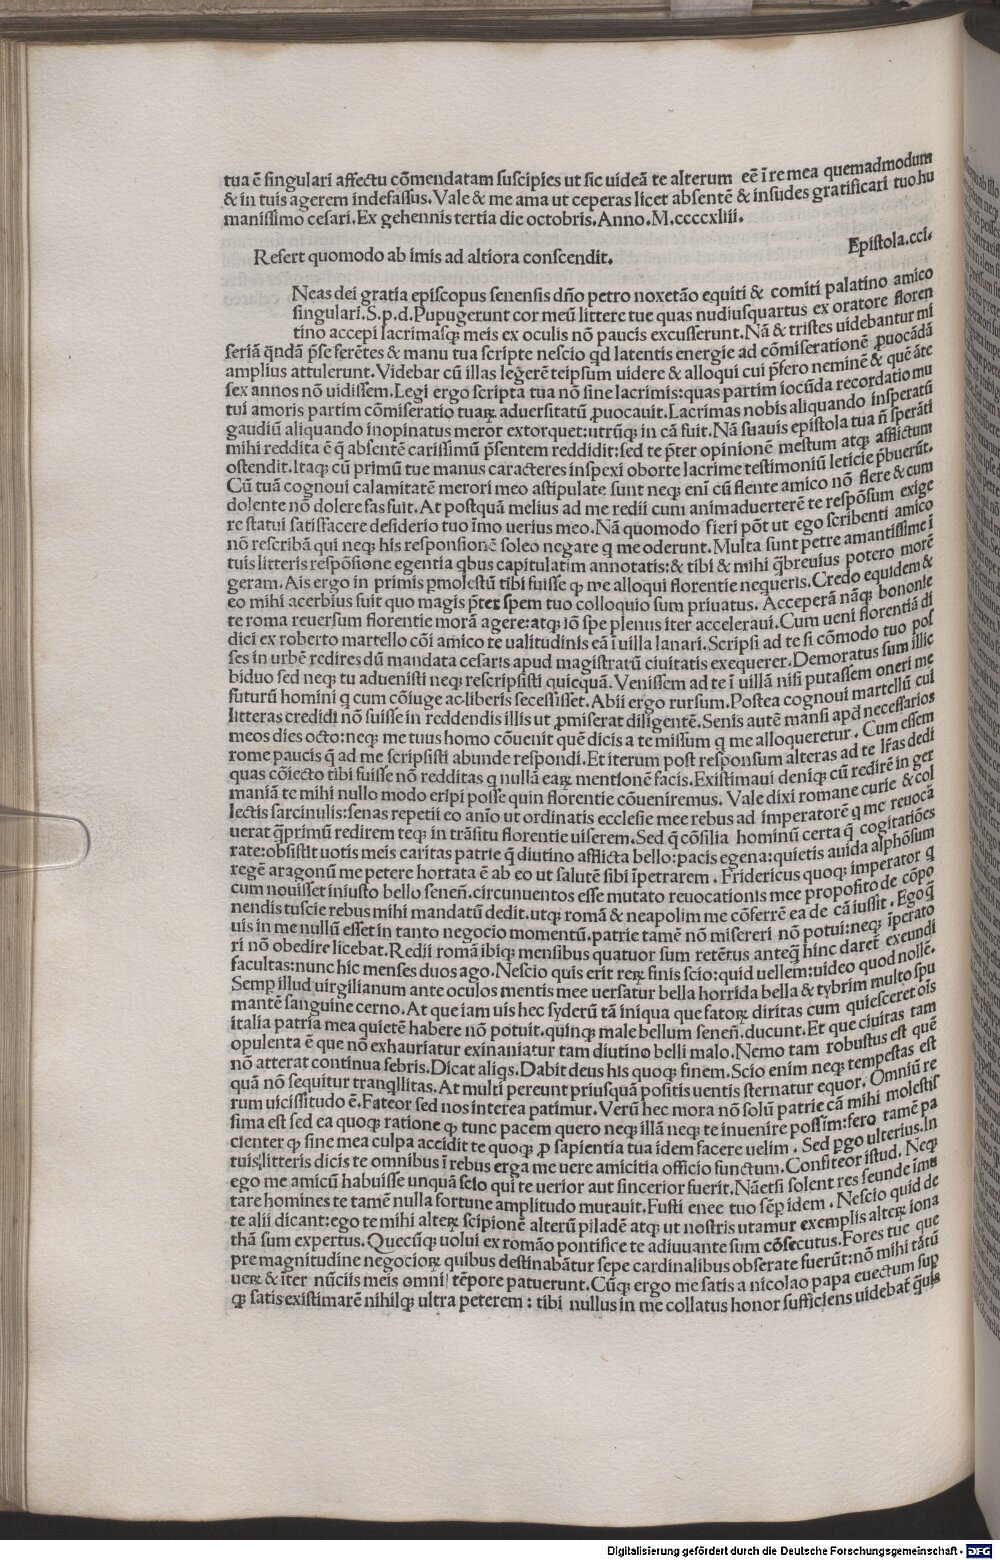 tua ē singulari affectu cōmendatam suscipies ut sic uideā te alterum eē ī re mea quemadmodum
& in tuis agerem indefassus. Vale & me ama ut ceperas licet absentē & insudes gratificari tuo hu
manissimo cesari. Ex gehennis tertia die octobris. Anno. M.ccccxliii.
Refert quomodo ab imis ad altiora conscendit. Epistola.cci.
Neas dei gratia episcopus senensis dño petro noxetāo equiti & comiti palatino amico
singulari. S.p.d. Pupugerunt cor meū littere tue quas nudiusquartus ex oratore floren
tino accepi lacrimasq; meis ex oculis nō paucis excusserunt. Nā & tristes uidebantur mi
seriā qndā p̄se ferētes & manu tua scripte nescio qd latentis energie ad cōmiserationē ꝓuocādā
amplius attulerunt. Videbar cū illas legerē teipsum uidere & alloqui cui p̄fero neminē & quē āte
sex annos nō uidissem. Legi ergo scripta tua nō sine lacrimis: quas partim iocūda recordatio mu
tui amoris partim cōmiseratio tuaꝝ aduersitatū ꝓuocauit. Lacrimas nobis aliquando insperatū
gaudiū aliquando inopinatus meror extorquet: utrūq; in cā fuit. Nā suauis epistola tua ñ sperāti
mihi reddita ē q̄ absentē carissimū p̄sentem reddidit: sed te p̄ter opinionē mestum atq; afflictum
ostendit. Itaq; cū primū tue manus caracteres inspexi oborte lacrime testimoniū leticie p̄buerūt.
Cū tuā cognoui calamitatē merori meo astipulate sunt neq; eni cū flente amico nō flere & cum
dolente nō dolere fas fuit. At postquā melius ad me redii cum animaduerterē te respōsum exige
re statui satisfacere desiderio tuo imo uerius meo. Nā quomodo fieri pōt ut ego scribenti amico
nō rescribā qui neq; his responsionē soleo negare q me oderunt. Multa sunt petre amantissime ī
tuis litteris respōsione egentia qbus capitulatim annotatis: & tibi & mihi q̄breuius potero morē
geram. Ais ergo in primis pmolestū tibi fuisse ꝙ me alloqui florentie nequeris. Credo equidem &
eo mihi acerbius fuit quo magis p̄ter spem tuo colloquio sum priuatus. Acceperā nāq; bononie
te roma reuersum florentie morā agere: atq; iō spe plenus iter acceleraui. Cum ueni florentiā di
dici ex roberto martello cōi amico te ualitudinis eā ī uilla lanari. Scripsi ad te si cōmodo tuo pos
ses in urbē redires dū mandata cesaris apud magistratū ciuitatis exequerer. Demoratus sum illic
biduo sed neq; tu aduenisti neq; rescripsisti quicquā. Venissem ad te ī uillā nisi putassem oneri me
futurū homini q cum cōiuge ac liberis secessisset. Abii ergo rursum. Postea cognoui martellū cui
litteras credidi nō fuisse in reddendis illis ut ꝓmiserat diligentē. Senis autē mansi apd̄ necessarios
meos dies octo: neq; me tuus homo cōuenit quē dicis a te missum q me alloqueretur. Cum essem
rome paucis q̄ ad me scripsisti abunde respondi. Et iterum post responsum alteras ad te lr̄as dedi
quas cōiecto tibi fuisse nō redditas q nullā eaꝝ mentionē facis. Existimaui deniq; cū redirē in ger
maniā te mihi nullo modo eripi posse quin florentie cōueniremus. Vale dixi romane curie & col
lectis sarcinulis: senas repetii eo anio ut ordinatis ecclesie mee rebus ad imperatorē q me reuoca
uerat q̄primū redirem teq; in trāsitu florentie uiserem. Sed q̄ cōsilia hominū certa q̄ cogitatiōes
rate: obsistit uotis meis caritas patrie q̄ diutino afflicta bello: pacis egena: quietis auida alphōsum
regē aragonū me petere hortata ē ab eo ut salutē sibi īpetrarem. Fridericus quoq; imperator q
cum nouisset iniusto bello seneñ. circunuentos esse mutato reuocationis mee proposito de cōpo
nendis tuscie rebus mihi mandatū dedit. utq; romā & neapolim me cōferrē ea de cā iussit. Ego q̄
uis in me nullū esset in tanto negocio momentū. patrie tamē nō misereri nō potui: neq; īperato
ri nō obedire licebat. Redii romā ibiq; mensibus quatuor sum retētus anteq̄ hinc daret̄ exeundi
facultas: nunc hic menses duos ago. Nescio quis erit reꝝ finis scio: quid uellem: uideo quod nollē.
Semp illud uirgilianum ante oculos mentis mee uersatur bella horrida bella & tybrim multo spu
mantē sanguine cerno. At que iam uis hec syderū tā iniqua que fatoꝝ diritas cum quiesceret ois
italia patria mea quietē habere nō potuit. quinq; male bellum seneñ. ducunt. Et que ciuitas tam
opulenta ē que nō exhauriatur exinaniatur tam diutino belli malo. Nemo tam robustus est quē
nō atterat continua febris. Dicat aliqs. Dabit deus his quoq; finem. Scio enim neq; tempestas est
quā nō sequitur tranqllitas. At multi pereunt priusquā positis uentis sternatur equor. Omniū re
rum uicissitudo ē. Fateor sed nos interea patimur. Verū hec mora nō solū patrie cā mihi molestis
sima est sed ea quoq; ratione ꝙ tunc pacem quero neq; illā neq; te inuenire possim: fero tamē pa
cienter ꝙ sine mea culpa accidit te quoq; ꝓ sapientia tua idem facere uelim. Sed pgo ulterius. In
tuis litteris dicis te omnibus ī rebus erga me uere amicitia officio functum. Confiteor istud. Neq;
ego me amicū habuisse unquā scio qui te uerior aut sincerior fuerit. Nā etsi solent res seunde īmu
tare homines te tamē nulla fortune amplitudo mutauit. Fusti enee tuo sēp idem. Nescio quid de
te alii dicant: ego te mihi alteꝝ scipionē alterū piladē atq; ut nostris utamur exemplis alteꝝ iona
thā sum expertus. Quecūq; uolui ex romāo pontifice te adiuuante sum cōsecutus. Fores tue que
pre magnitudine negocioꝝ quibus destinabātur sepe cardinalibus obserate fuerūt: nō mihi tātū
ueꝝ & iter nūciis meis omni tēpore patuerunt. Cūq; ergo me satis a nicolao papa euectum sup
q; satis existimarē nihilq; ultra peterem: tibi nullus in me collatus honor sufficiens uidebat̄ q̄uis
Digitalisierung gefördert durch die Deutsche Forschungsgemeinschaft - DFG